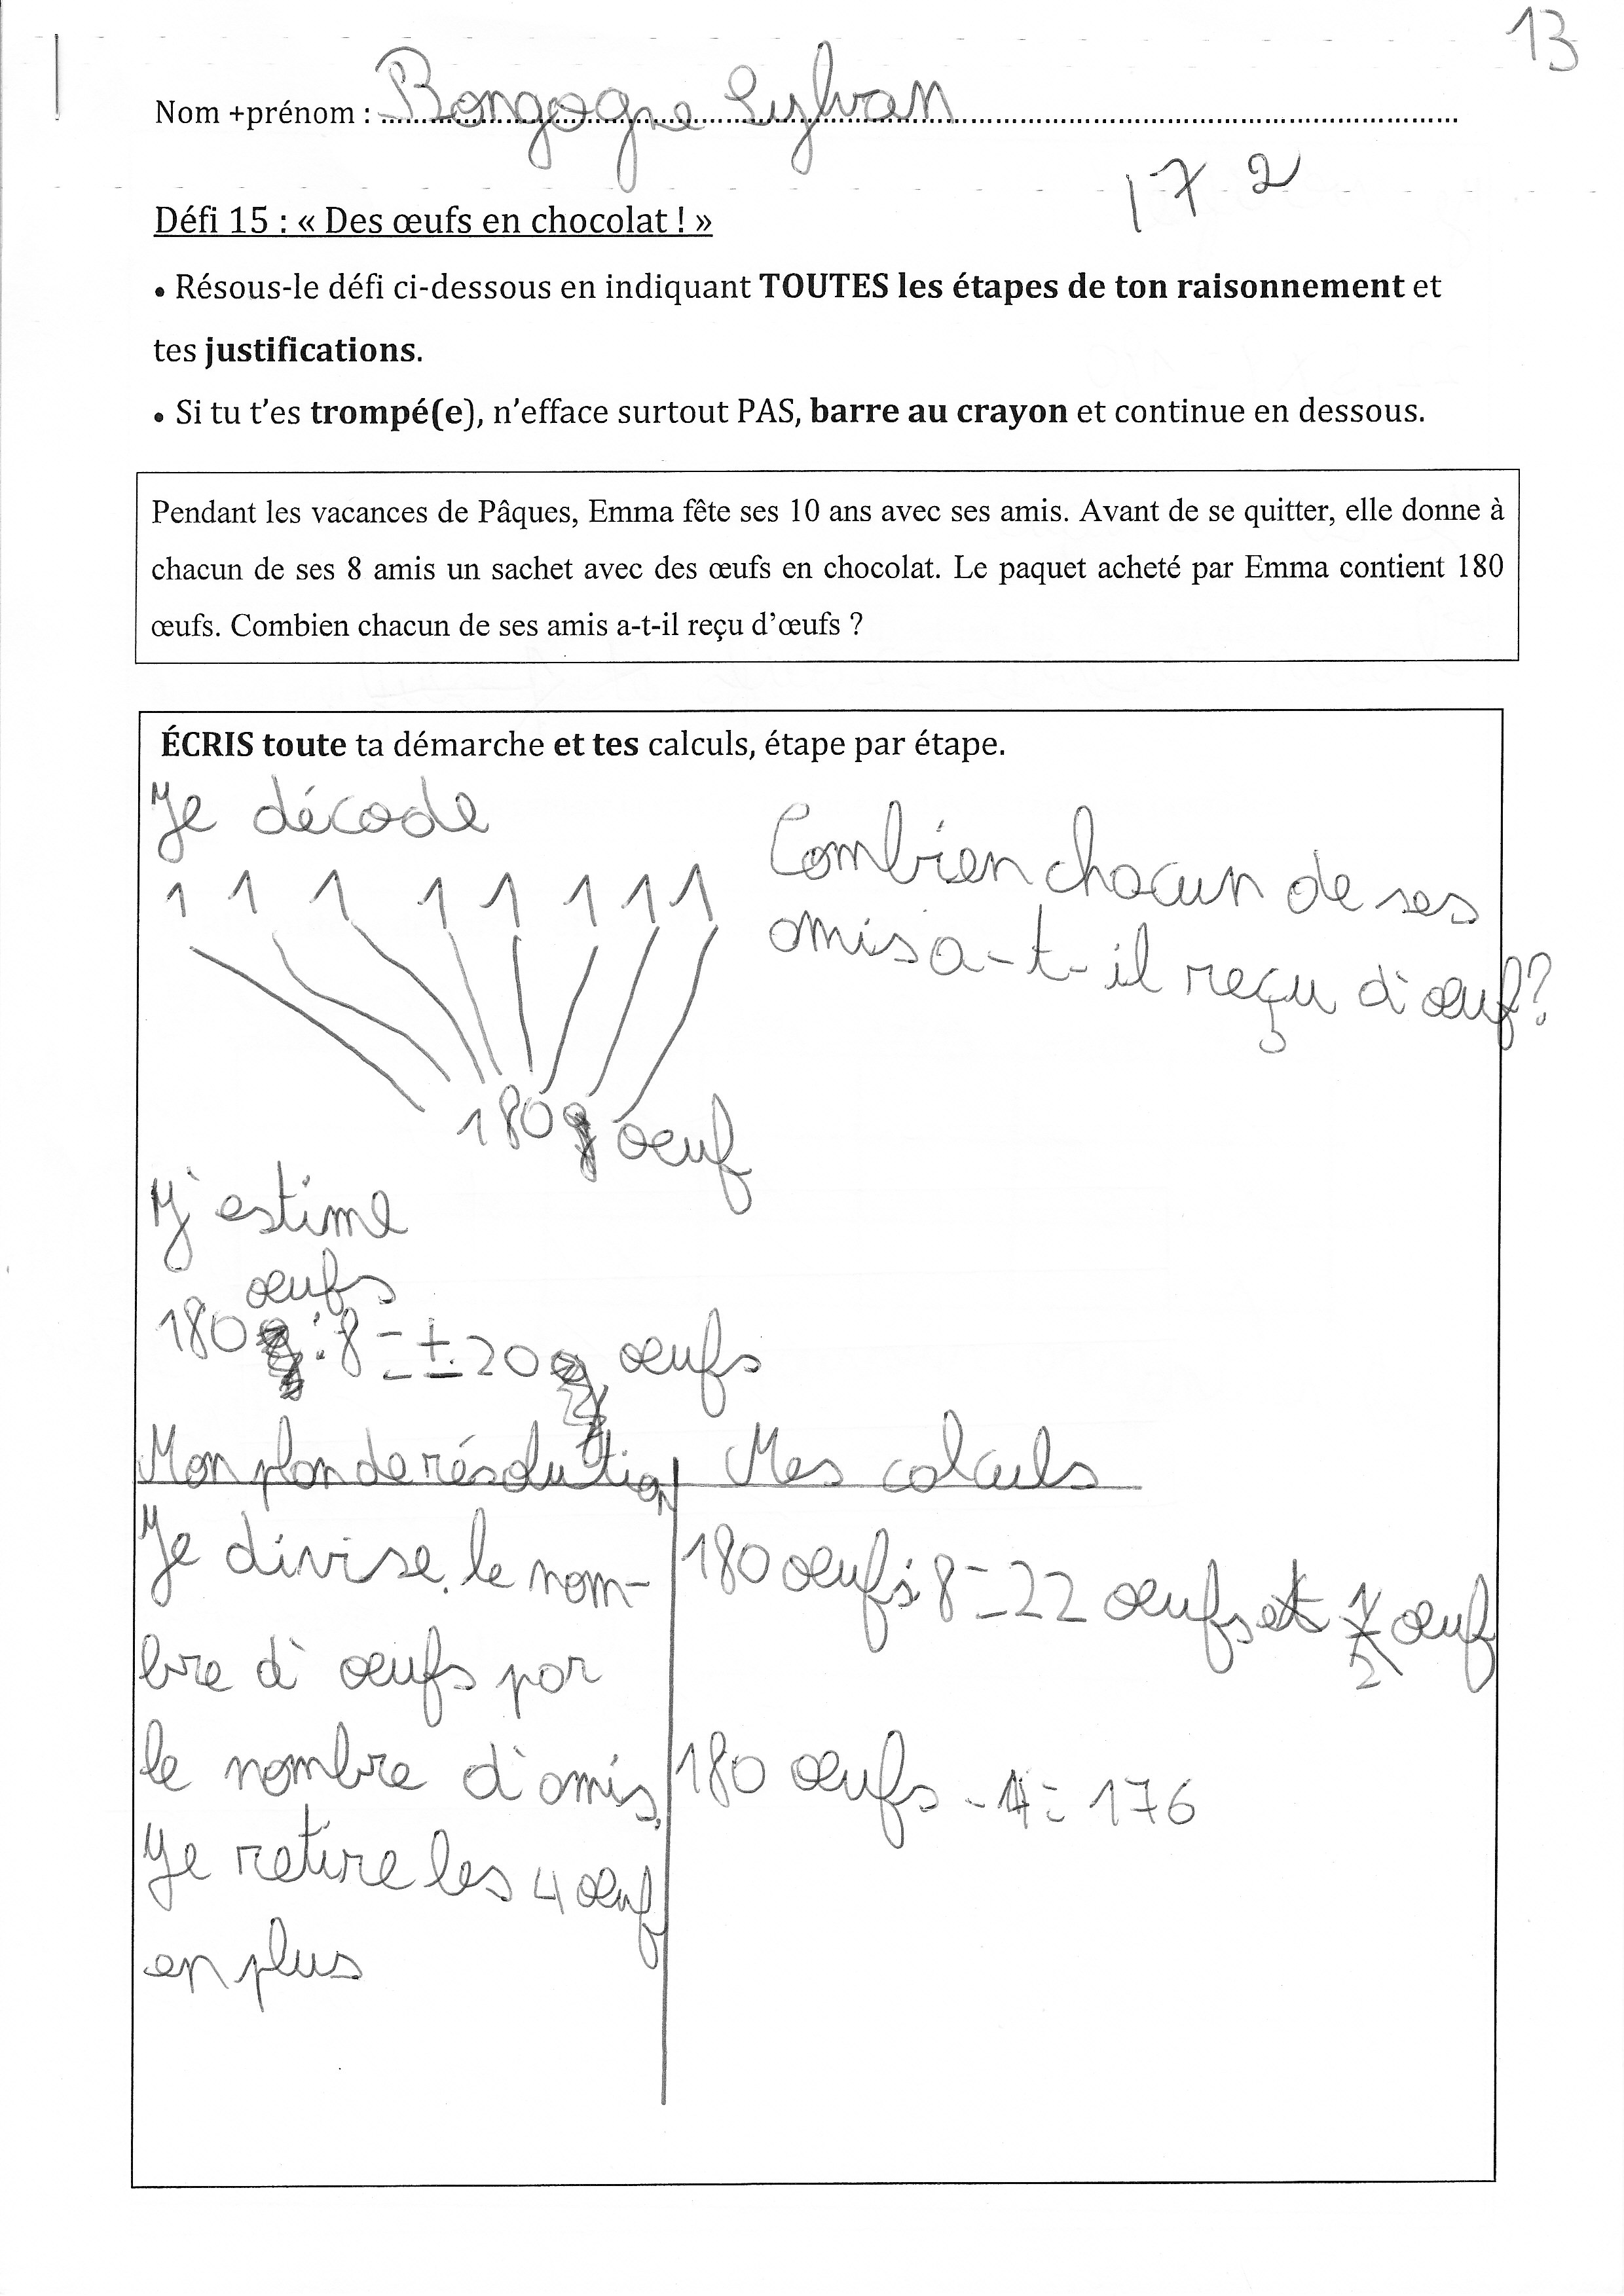 13
Nom +prénom : Bongogne Sylvan
172
Défi 15 : « Des œufs en chocolat ! »
• Résous-le défi ci-dessous en indiquant TOUTES les étapes de ton raisonnement et
tes justifications.
• Si tu t'es trompé(e), n'efface surtout PAS, barre au crayon et continue en dessous.
Pendant les vacances de Pâques, Emma fête ses 10 ans avec ses amis. Avant de se quitter, elle donne à
chacun de ses 8 amis un sachet avec des œufs en chocolat. Le paquet acheté par Emma contient 180
œufs. Combien chacun de ses amis a-t-il reçu d'œufs ?
ÉCRIS toute ta démarche et tes calculs, étape par étape.
Je décode
1 1 1 1 1 1 1 1
Combien chacun de ses
amis a-t-il reçu d'œuf?
180 œuf
J'estime
œufs
180 : 8 = ± 20 œufs
Mon plan de résolution
Mes calculs
Je divise le nom-
bre d'œufs par
le nombre d'amis.
Je retire les 4 œuf
en plus
180 œufs : 8 = 22 œufs et 1/2 œuf
180 œufs - 4 = 176